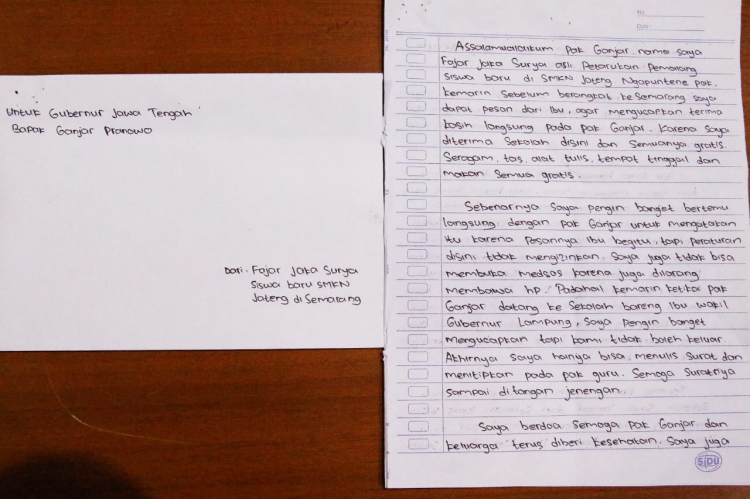 Untuk Gubernur Jawa Tengah
Bapak Ganjar Pranowo
Dari : Fajar Jaka Surya
Siswa baru SMKN
Jateng di Semarang
No
Date
Assalamualaikum pak Ganjar, nama saya
Fajar Jaka Surya asli Petarukan Pemalang
siswa baru di SMKN Jateng Ngapuntene pak,
kemarin sebelum berangkat ke Semarang saya
dapat pesan dari Ibu, agar mengucapkan terima
kasih langsung pada pak Ganjar. Karena saya
diterima sekolah disini dan semuanya gratis.
Seragam, tas, alat tulis, tempat tinggal dan
makan semua gratis.
Sebenarnya saya pengin banget bertemu
langsung dengan pak Ganjar untuk mengatakan
itu karena pesannya Ibu begitu, tapi peraturan
disini tidak mengizinkan. Saya juga tidak bisa
membuka medsos karena juga dilarang
membawa hp. Padahal kemarin ketika pak
Ganjar datang ke sekolah bareng Ibu wakil
Gubernur Lampung, saya pengin banget
mengucapkan tapi kami tidak boleh keluar.
Akhirnya saya hanya bisa, menulis surat dan
menitipkan pada pak guru. Semoga suratnya
sampai di tangan jenengan.
Saya berdoa semoga pak Ganjar dan
keluarga terus diberi kesehatan. Saya juga
SIDU